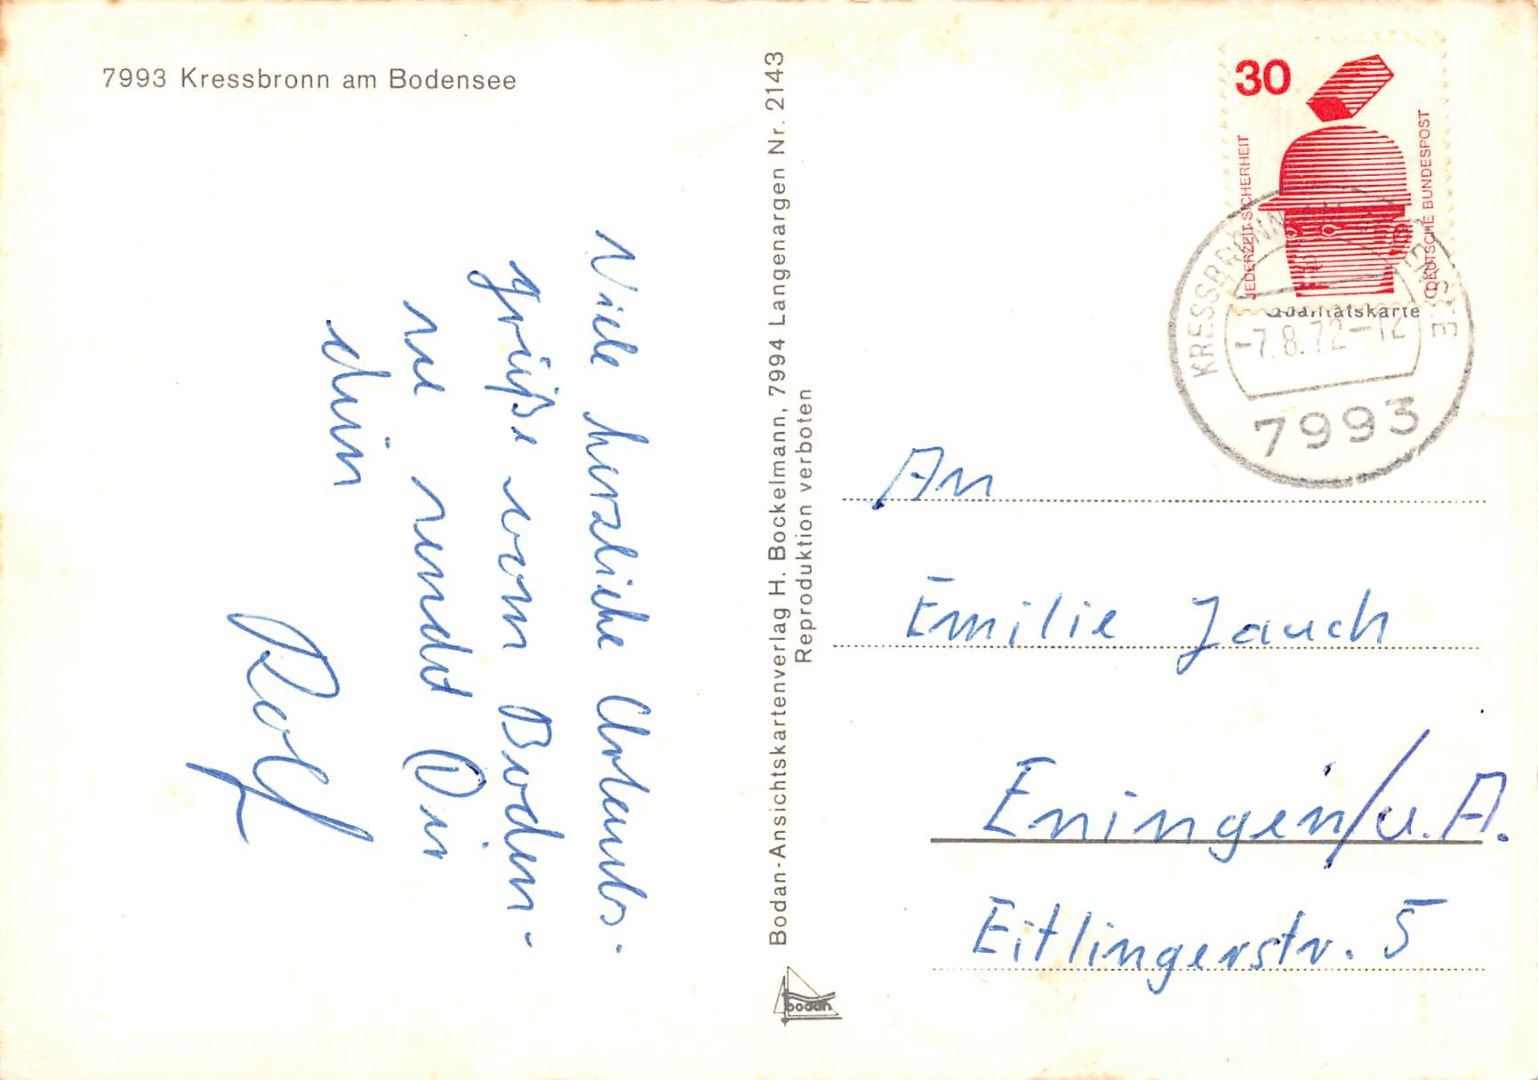 7993 Kressbronn am Bodensee
Viele herzliche Urlaubs-
grüße vom Boden-
se sendet Dir
dein
Rolf
Bodan-Ansichtskartenverlag H. Bockelmann, 7994 Langenargen Nr. 2143
Reproduktion verboten
bodan
30
JEDERZEIT SICHERHEIT
DEUTSCHE BUNDESPOST
Qualitätskarte
KRESSBRONN AM BODENSEE
-7.8.72-12
7993
An
Emilie Jauch
Eningen/u.A.
Eitlingerstr. 5